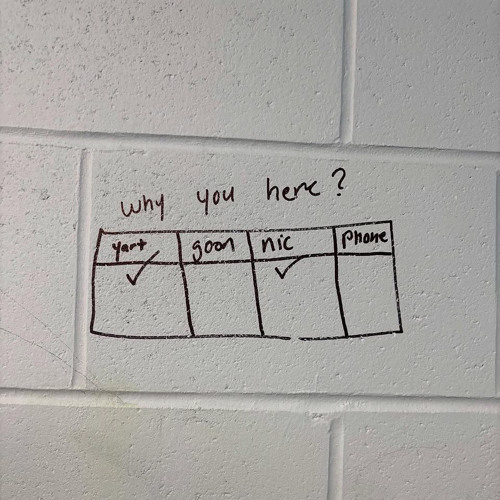 why you here?
yart goon nic phone
✓ ✓